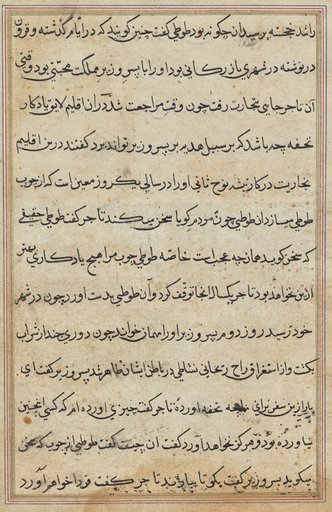 راند خجسته پرسید ان چگونه بود طوطی گفت چنین گویند که در ایام گذشته و قرون
در نوشته در شهری بازرگانی بود او را با پسر وزیر مملکت محبتی بود وقتی
آن تاجر جایی بتجارت رفت چون وقت مراجعت شد در ان اقلیم لایق یادکار
تحفه چه باشد که بر سبیل هدیه بر پسر وزیر تواند برد کفتند درین اقلیم
نجاریست در کار تیشه نوح ثانی او را در سالی یک روز معین است که از چوب
طوطی میسازد ان طوطی چون مردم کویا سخن میکند تاجر کفت طوطی حقیقی
که سخن کوید همانچه عجب است خاصه طوطی چوب مرا هیچ یادکاری بهتر
ازین نخواهد بود تاجر یکسال انجا توقف کرد و آن طوطی بدست اورد چون در شهر
خود رسید روز دوم پسر وزیر را مهمان خواند چون دوری چند از شراب
بکشت و از استغراق راح ریحانی نشاطی در باطن ایشان ظاهر شد پسر وزیر کفت ای
یار ازین سفر برای چه تحفه اورده تاجر کفت چیزی اورده ام که کسی انچنین
نیاورده بود و هرکز نخواهد آورد کفت ان چیست کفت طوطی از چوب که سخن
میکوید پسر وزیر کفت بکو تا بیارند تاجر کفت فردا خواهم آورد